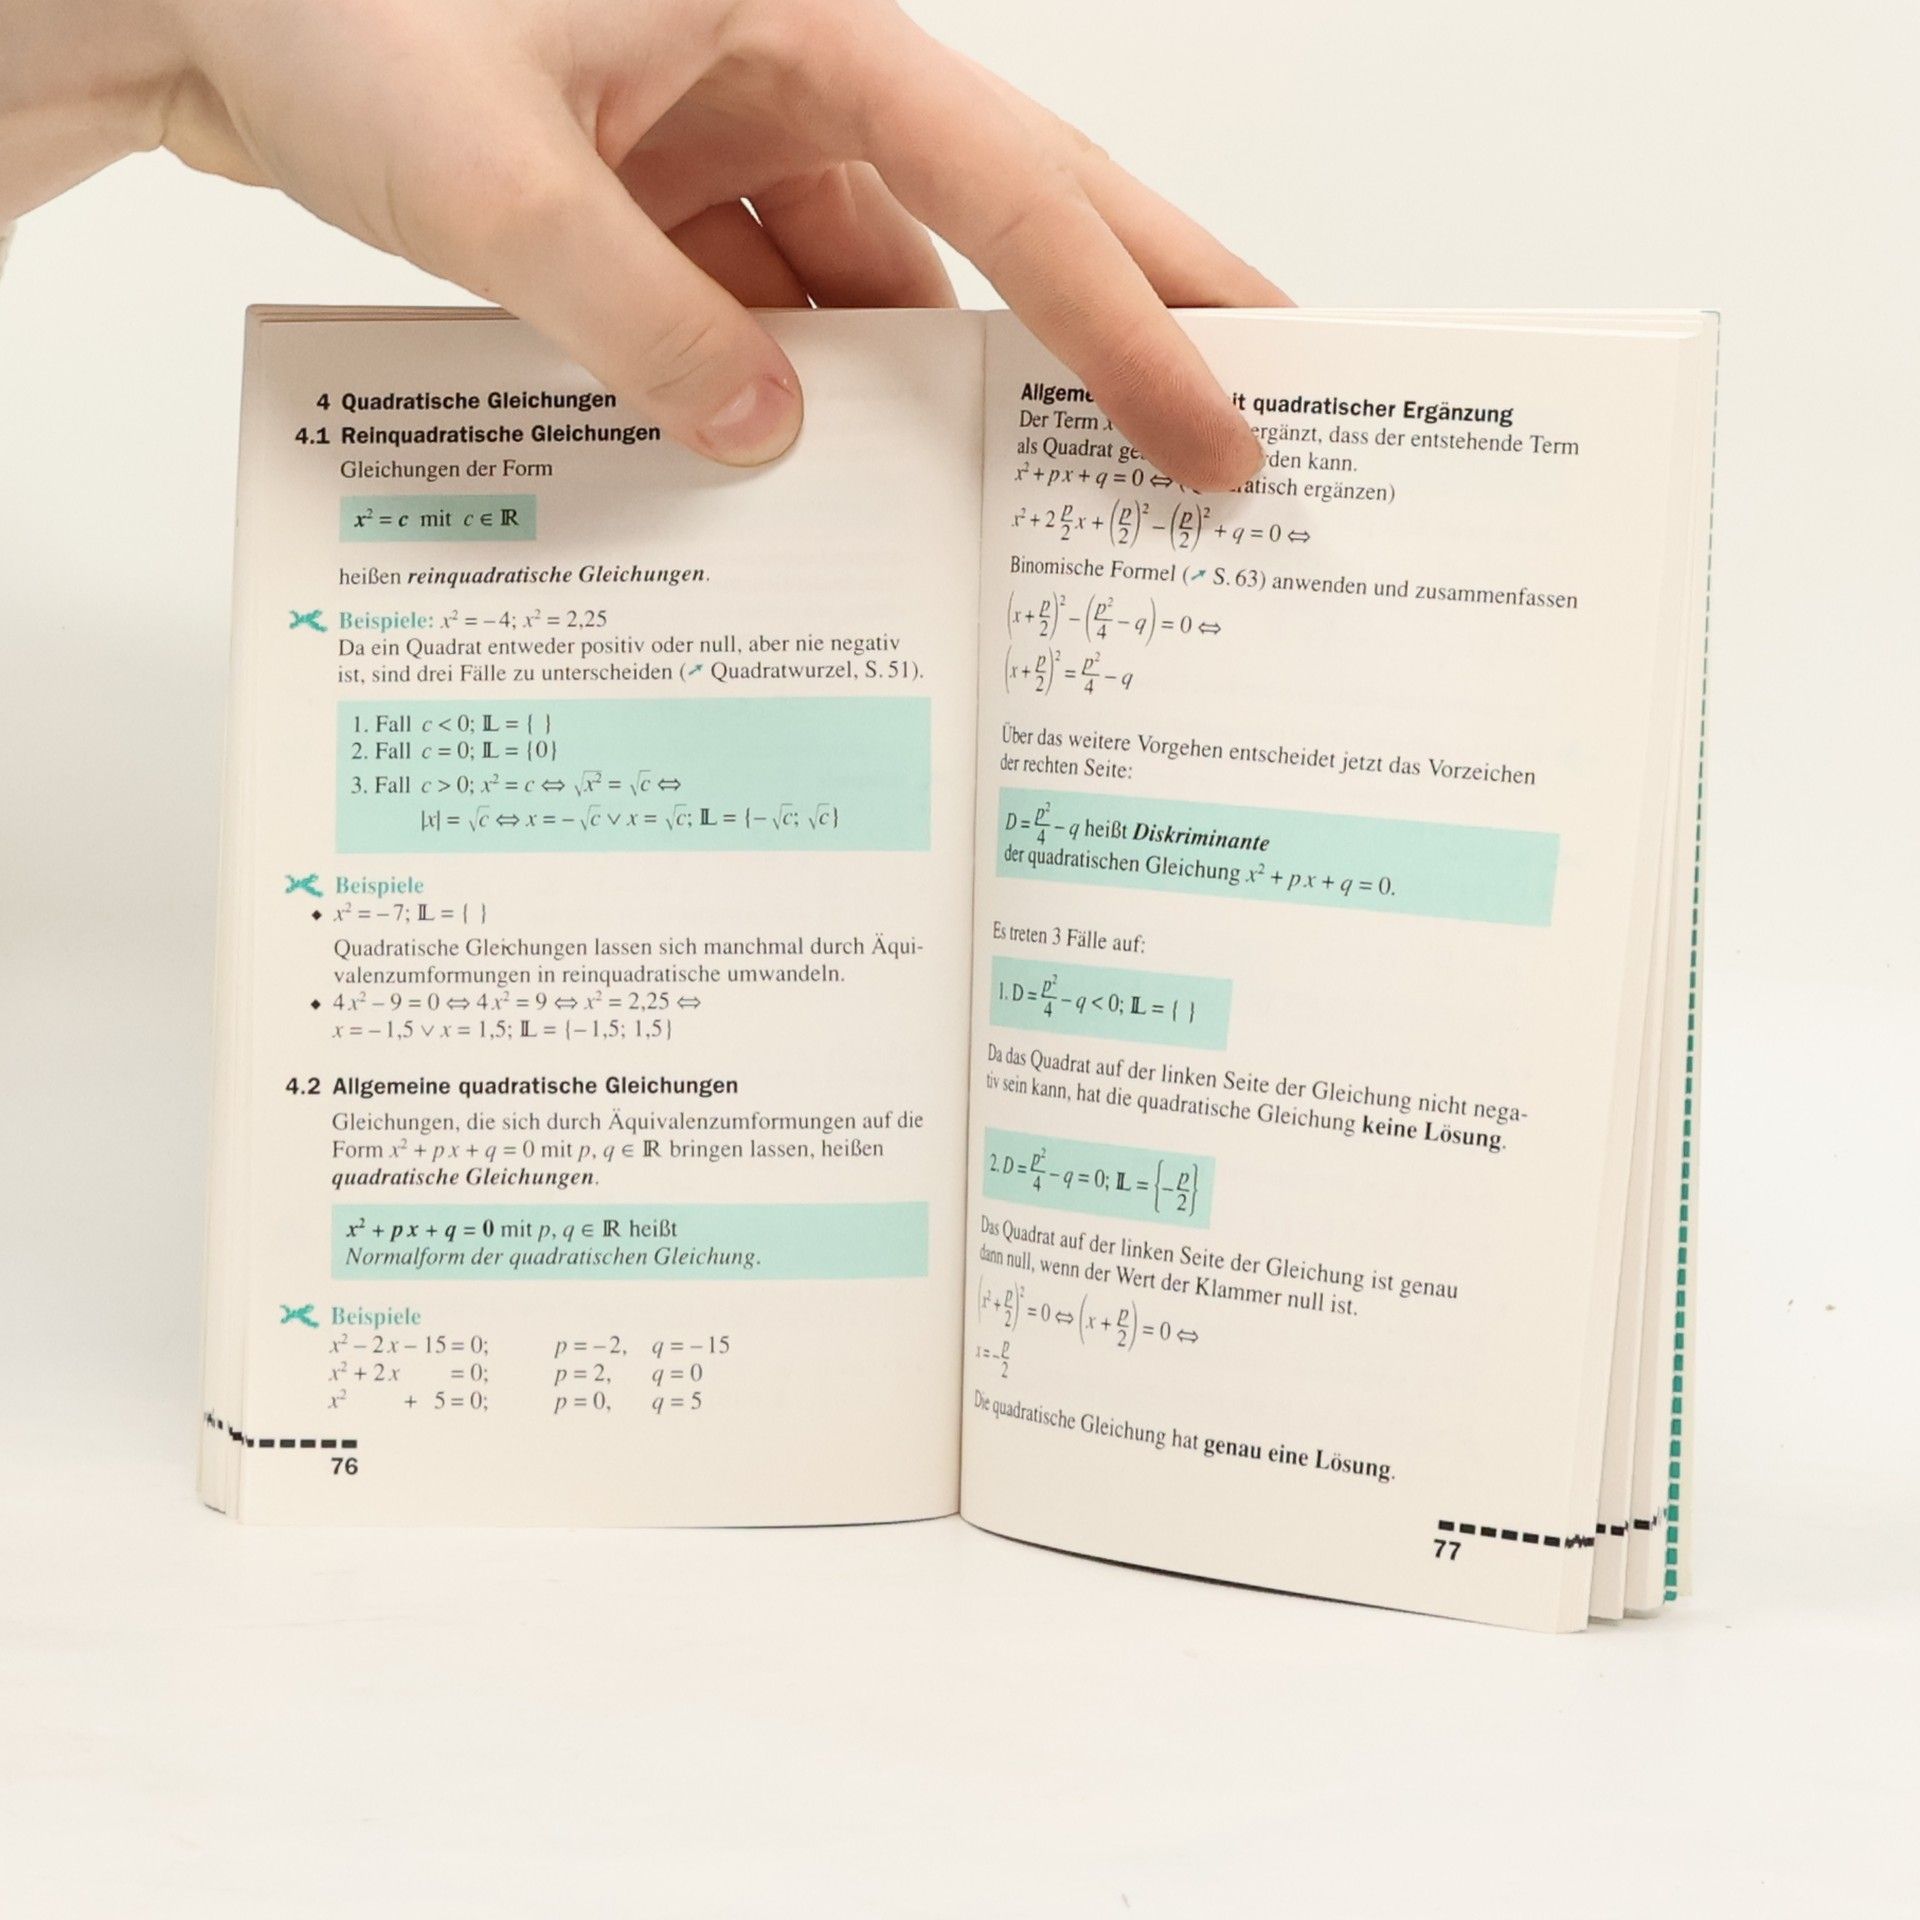 4 Quadratische Gleichungen
4.1 Reinquadratische Gleichungen
Gleichungen der Form
x² = c mit c ∈ ℝ
heißen reinquadratische Gleichungen.
Beispiele: x² = – 4; x² = 2,25
Da ein Quadrat entweder positiv oder null, aber nie negativ
ist, sind drei Fälle zu unterscheiden (↗ Quadratwurzel, S. 51).
1. Fall c < 0; 𝕃 = { }
2. Fall c = 0; 𝕃 = {0}
3. Fall c > 0; x² = c ⇔ √x² = √c ⇔
|x| = √c ⇔ x = – √c ∨ x = √c; 𝕃 = {– √c; √c}
Beispiele
◆ x² = – 7; 𝕃 = { }
Quadratische Gleichungen lassen sich manchmal durch Äqui-
valenzumformungen in reinquadratische umwandeln.
◆ 4x² – 9 = 0 ⇔ 4x² = 9 ⇔ x² = 2,25 ⇔
x = – 1,5 ∨ x = 1,5; 𝕃 = {– 1,5; 1,5}
4.2 Allgemeine quadratische Gleichungen
Gleichungen, die sich durch Äquivalenzumformungen auf die
Form x² + px + q = 0 mit p, q ∈ ℝ bringen lassen, heißen
quadratische Gleichungen.
x² + px + q = 0 mit p, q ∈ ℝ heißt
Normalform der quadratischen Gleichung.
Beispiele
x² – 2x – 15 = 0; p = – 2, q = – 15
x² + 2x = 0; p = 2, q = 0
x² + 5 = 0; p = 0, q = 5
76
quadratischer Ergänzung
Der Term ergänzt, dass der entstehende Term
als Quadrat kann.
x² + px + q = 0 ⇔ ergänzen)
x² + 2 p/2 x + (p/2)² – (p/2)² + q = 0 ⇔
Binomische Formel (↗ S. 63) anwenden und zusammenfassen
(x + p/2)² – (p²/4 – q) = 0 ⇔
(x + p/2)² = p²/4 – q
Über das weitere Vorgehen entscheidet jetzt das Vorzeichen
der rechten Seite:
D = p²/4 – q heißt Diskriminante
der quadratischen Gleichung x² + px + q = 0.
Es treten 3 Fälle auf:
1. D = p²/4 – q < 0; 𝕃 = { }
Da das Quadrat auf der linken Seite der Gleichung nicht nega-
tiv sein kann, hat die quadratische Gleichung keine Lösung.
2. D = p²/4 – q = 0; 𝕃 = {– p/2}
Das Quadrat auf der linken Seite der Gleichung ist genau
dann null, wenn der Wert der Klammer null ist.
(x² + p/2)² = 0 ⇔ (x + p/2) = 0 ⇔
x = – p/2
Die quadratische Gleichung hat genau eine Lösung.
77